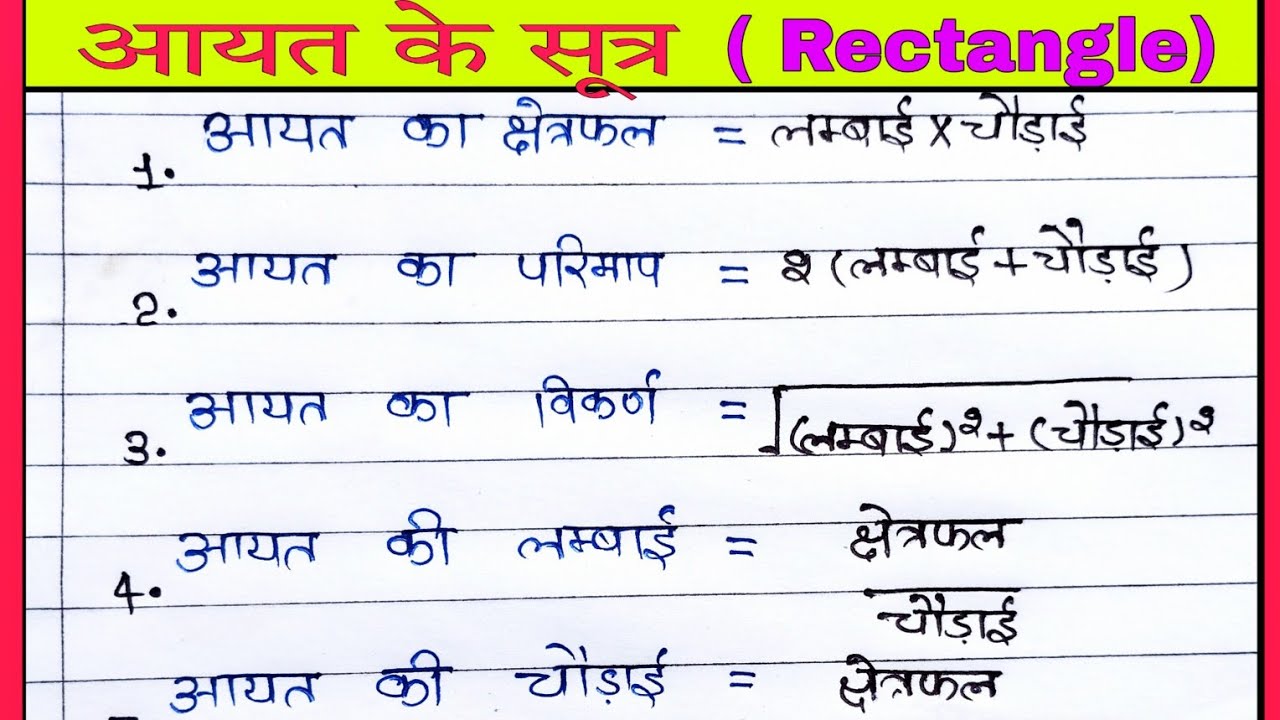 आयत के सूत्र ( Rectangle)
1. आयत का क्षेत्रफल = लम्बाई x चौड़ाई
2. आयत का परिमाप = २ (लम्बाई + चौड़ाई)
3. आयत का विकर्ण = √(लम्बाई)² + (चौड़ाई)²
4. आयत की लम्बाई = क्षेत्रफल
चौड़ाई
आयत की चौड़ाई = क्षेत्रफल